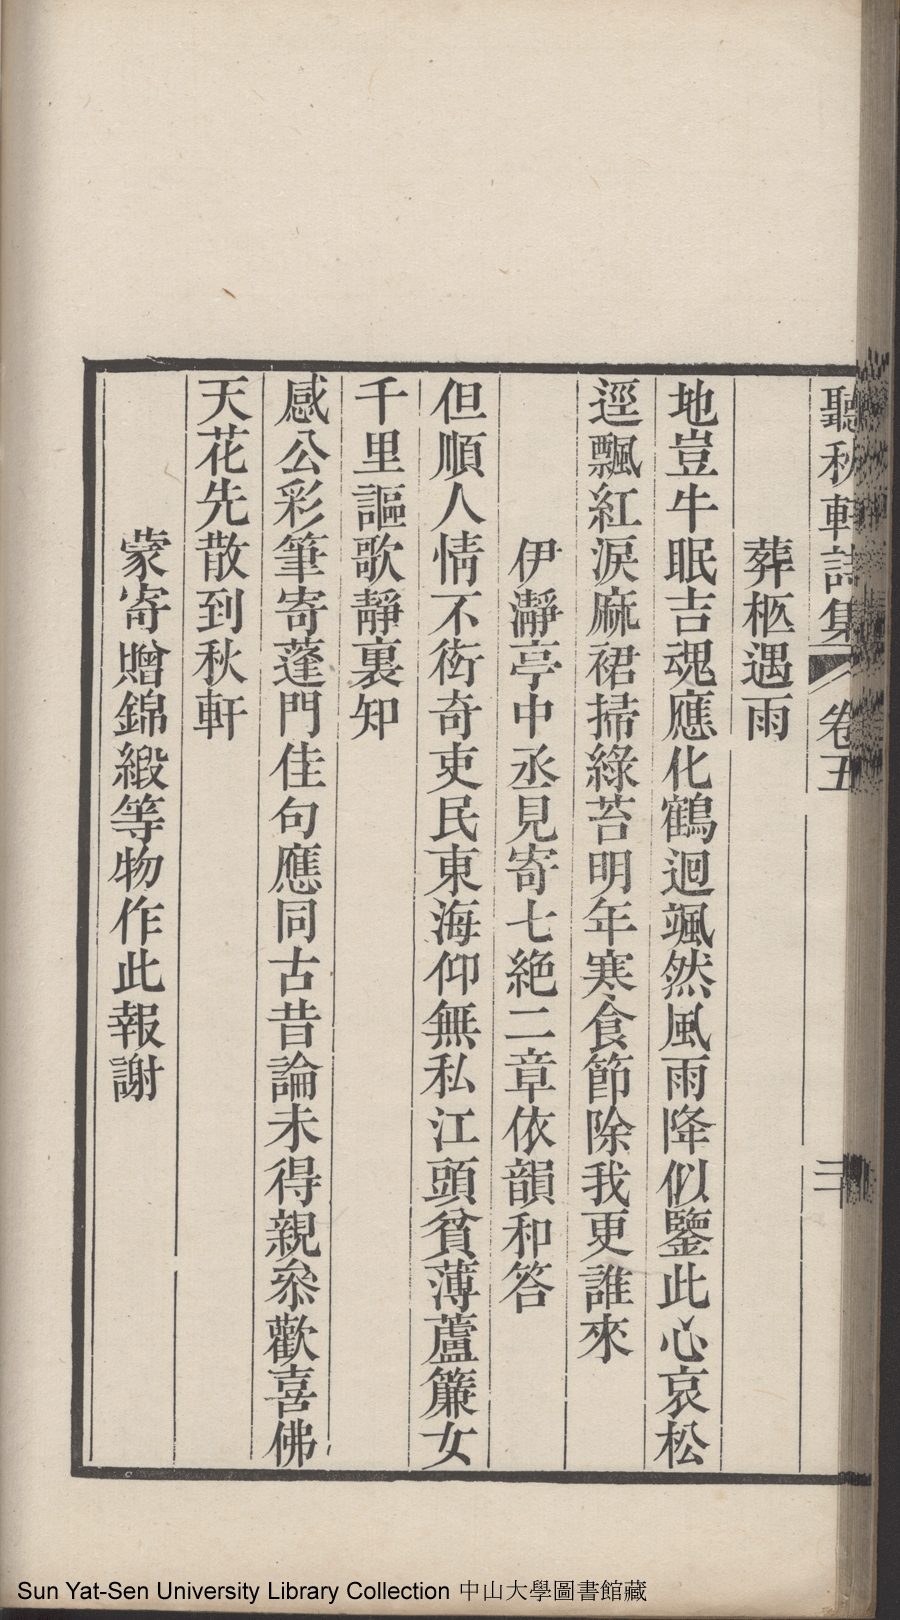 聽秋軒詩集 卷五 三
葬柩遇雨
地豈牛眠吉魂應化鶴迴颯然風雨降似鑒此心哀松
逕飄紅淚麻裙掃綠苔明年寒食節除我更誰來
伊瀞亭中丞見寄七絕二章依韻和答
但順人情不衒奇吏民東海仰無私江頭貧薄蘆簾女
千里謳歌靜裏知
感公彩筆寄蓬門佳句應同古昔論未得親叅歡喜佛
天花先散到秋軒
蒙寄贈錦緞等物作此報謝
Sun Yat-Sen University Library Collection 中山大學圖書館藏